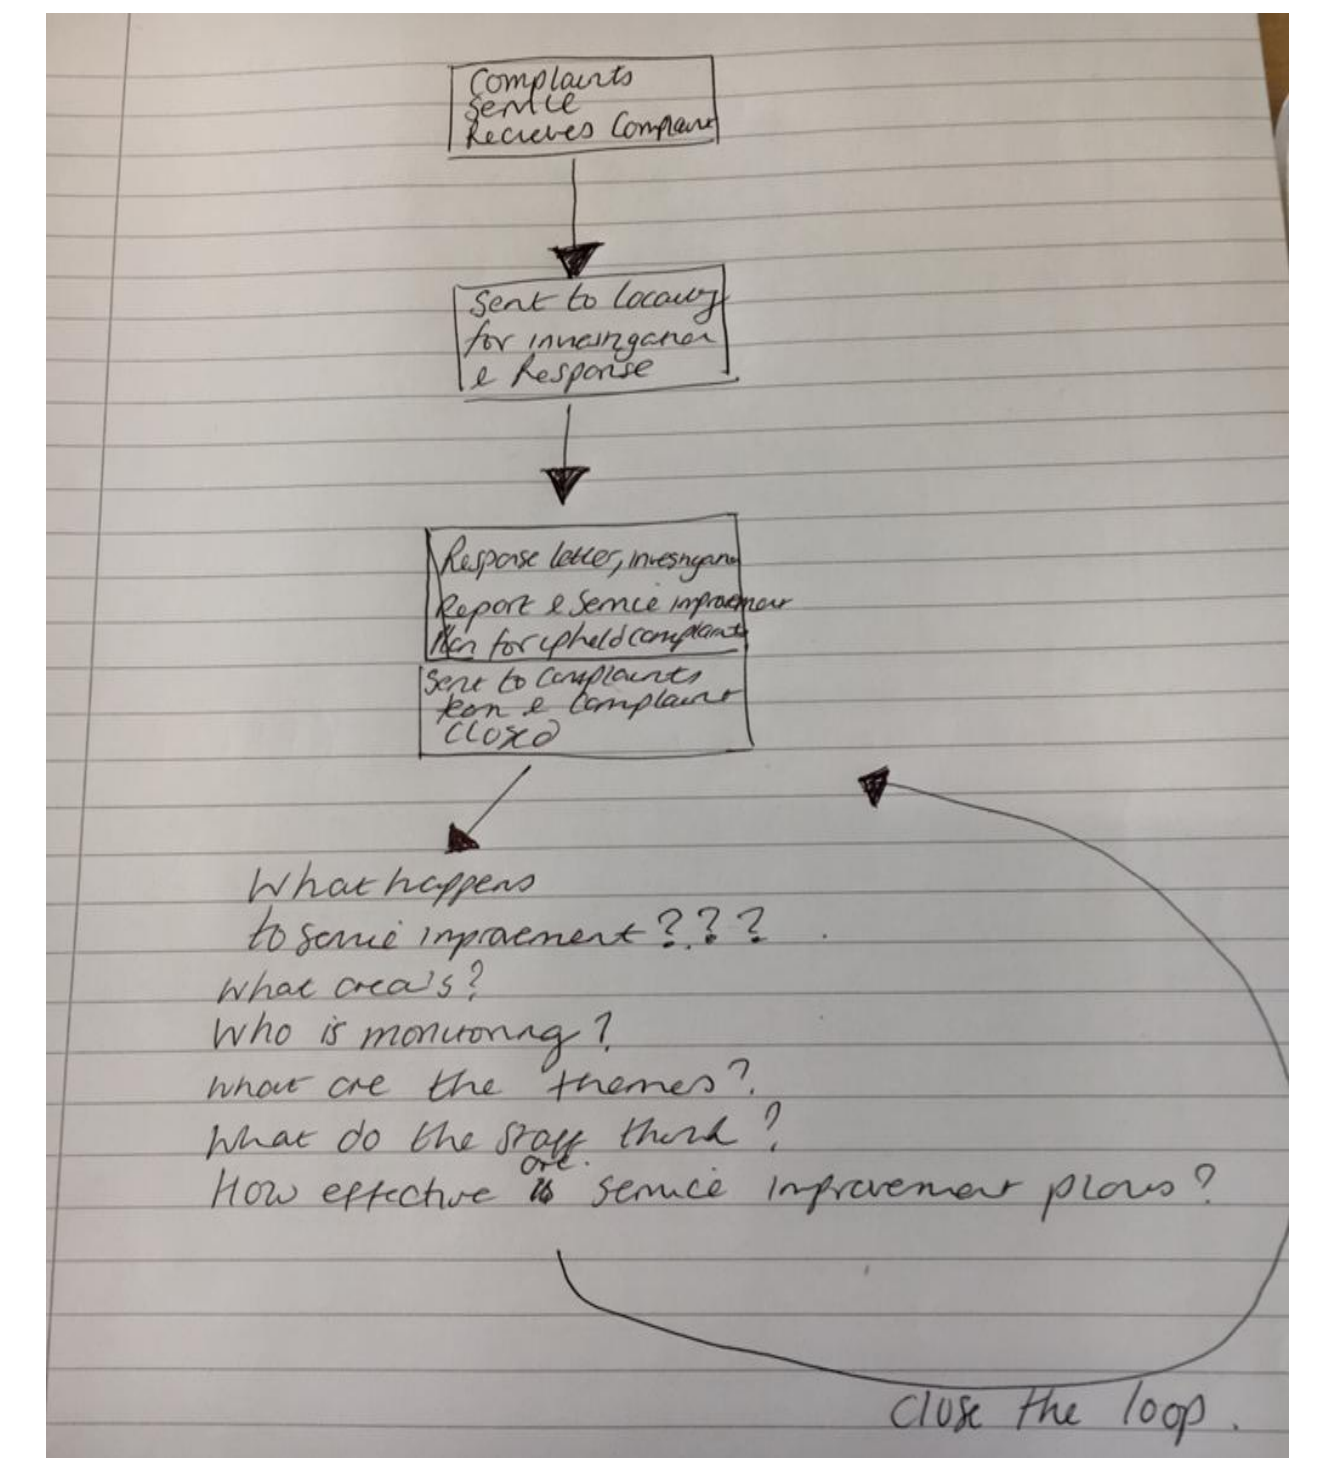 Complaints
Service
Recieves Complaint
Sent to Locality
for investigation
& Response
Response letter, investigation
Report & Service improvement
Plan for upheld complaints
Sent to Complaints
team & Complaint
Closed
What happens
to service improvement???
What area's?
Who is monitoring?
What are the themes?
What do the staff think?
are
How effective is service improvement plans?
Close the loop.